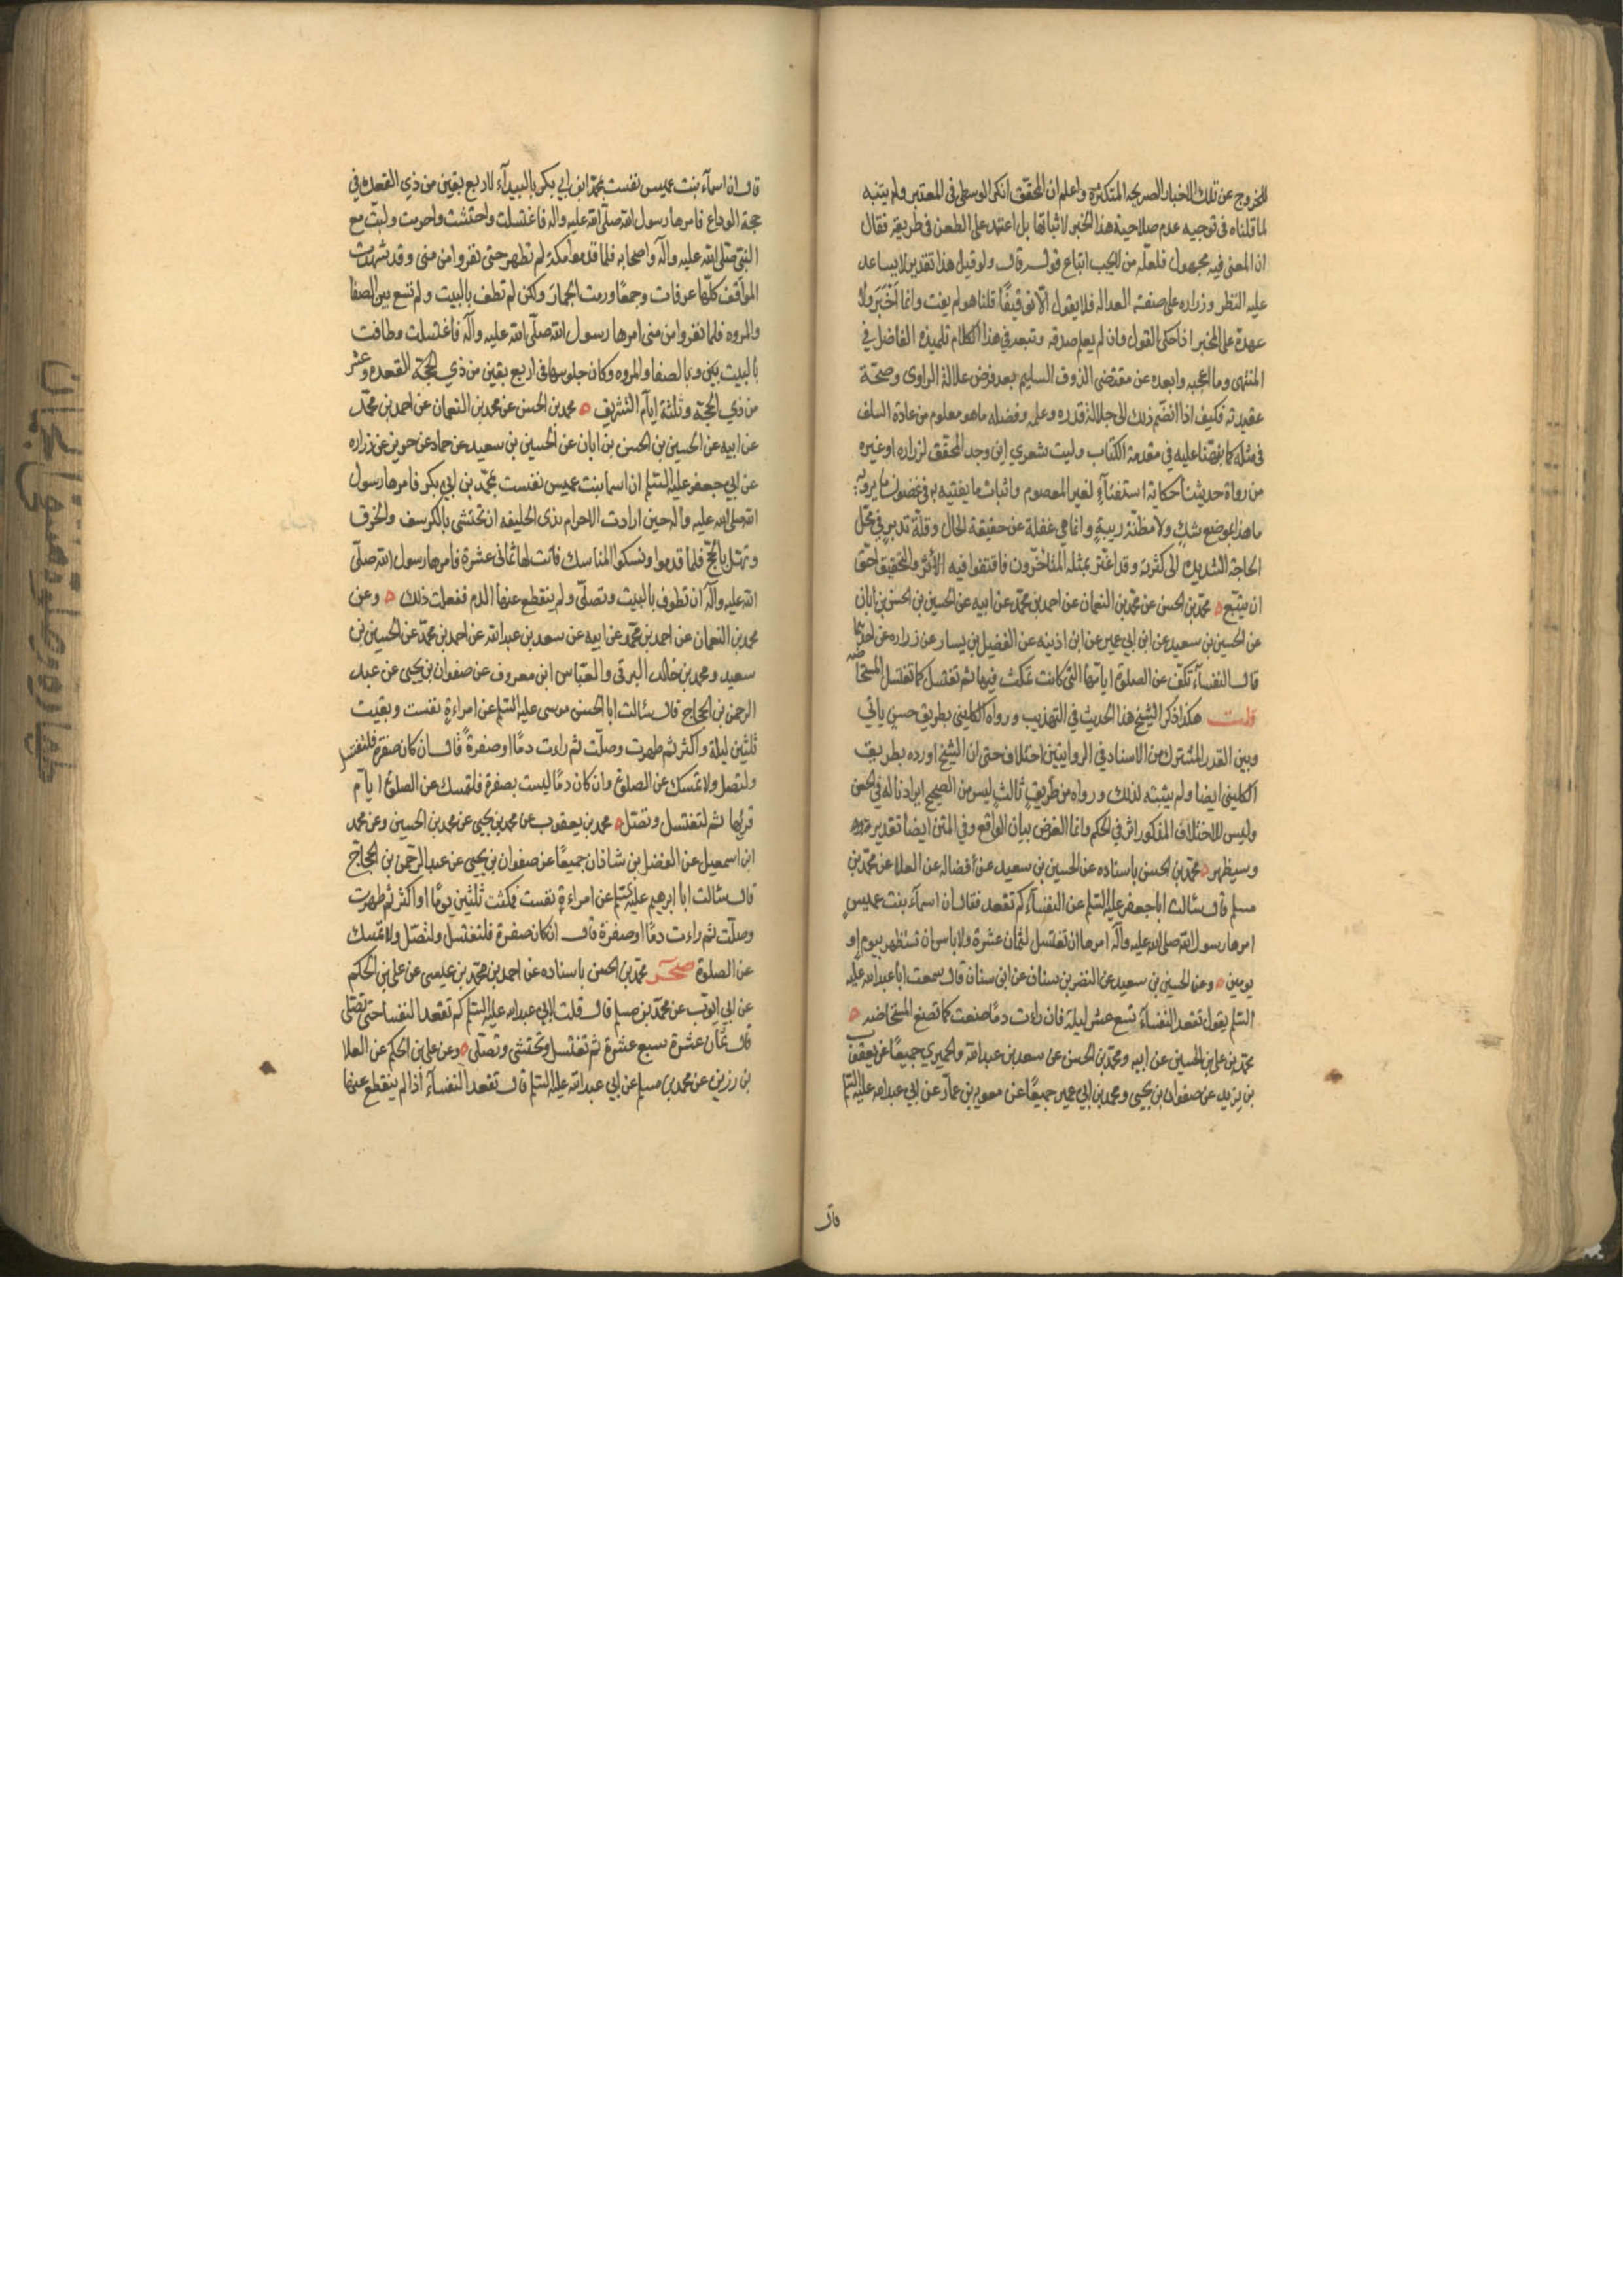 للخروج عن تلك الاخبار الصريحة المتكثرة واعلم ان المحقق انكر الوسطى في المعتبر ولم يتنبه
لما قلناه في توجيه عدم صلاحية هذا الخبر لاثباتها بل اعتمد على الطعن في طريقه فقال
ان المعنى فيه مجهول فلعله من لا يجب اتباع قوله قال ولو قيل هذا تقدير لا يساعد
عليه النظر وزراره على صفته العدالة فلا يقول الا توقيفا قلنا هو لم يفت وانما أخبَرَ ولا
عهدة على المخبر اذا حكى القول وان لم يعلم صدقه وتبعه في هذا الكلام تلميذه الفاضل في
المنتهى وما اعجبه وابعده عن مقتضى الذوق السليم بعد فرض علالة الراوى وصحة
عقيدته فكيف اذا انضم ذلك الى جلالة قدره وعلمه وفضله ما هو معلوم من عادة السلف
في مثله كما نبهنا عليه في مقدمة الكتاب وليت شعري اين وجد المحقق لزراره او غيره
من رواة حديثنا حكاية استفتاء لغير المعصوم واثبات ما يفتيه به في غضون ما يرويه
ما هذا بموضع شك ولا مظنة ريبة وانما هي غفلة عن حقيقة الحال وقلة تدبر في محل
الحاجة الشديده الى كثرته وقد اغتر بمثله المتأخرون فاقتفوا فيه الأثر والتحقيق احق
ان يتبع ه محمد بن الحسن عن محمد بن النعمان عن احمد بن محمد عن ابيه عن الحسين بن الحسن بن ابان
عن الحسين بن سعيد عن ابن ابي عمير عن ابن اذينه عن الفضيل بن يسار عن زراره عن احدهما
قال النفساء تكف عن الصلوة ايامها التي كانت تمكث فيها ثم تغتسل كما تغتسل المستحاضه
قلت هكذا ذكر الشيخ هذا الحديث في التهذيب ورواه الكليني بطريق حسن ياتي
وبين القدر المشترك من الاسناد في الروايتين اختلاف حتى ان الشيخ اورده بطريق
الكليني ايضا ولم يثبته لذلك ورواه من طريق ثالث ليس من الصحيح ايرادنا له في الحسن
وليس للاختلاف المذكور اثر في الحكم وانما الغرض بيان الواقع وفي المتن ايضا تقدير
وسيظهر ه محمد بن الحسن باسناده عن الحسين بن سعيد عن فضاله عن العلا عن محمد بن
مسلم قال سالت ابا جعفر عليه السلم عن النفساء كم تقعد فقال ان اسماء بنت عميس
امرها رسول الله صلى الله عليه وآله امرها ان تغتسل لثمان عشرة ولا باس ان تستظهر بيوم او
يومين ه وعن الحسين بن سعيد عن النضر بن سنان عن ابن سنان قال سمعت ابا عبد الله عليه
السلم يقول تقعد النفساء تسع عشر ليلة فان رات دما صنعت كما تصنع المستحاضه ه
محمد بن على بن الحسين عن ابيه ومحمد بن الحسن عن سعد بن عبد الله والحميري جميعا عن يعقوب
بن يزيد عن صفوان بن يحيى ومحمد بن ابي عمير جميعا عن معويه بن عمار عن ابي عبد الله عليه السلم
قال
قال ان اسماء بنت عميس نفست بمحمد ابن ابي بكر بالبيداء لاربع بقين من ذي القعده في
حجة الوداع فامرها رسول الله صلى الله عليه واله فاغتسلت واحتشت واحرمت ولبت مع
النبي صلى الله عليه وآله واصحابه فلما قدموا مكة لم تطهر حتى نفروا من منى وقد شهدت
المواقف كلها عرفات وجمعا ورمت الجمار ولكن لم تطف بالبيت ولم تسع بين الصفا
والمروه فلما نفروا من منى امرها رسول الله صلى الله عليه وآله فاغتسلت وطافت
بالبيت وبالصفا والمروه وكان جلوسها في اربع بقين من ذي الحجة القعده وعشر
من ذي الحجة وثلثة ايام التشريق ه محمد بن الحسن عن محمد بن النعمان عن احمد بن محمد
عن ابيه عن الحسين بن الحسن بن ابان عن الحسين بن سعيد عن حماد عن حريز عن زراره
عن ابي جعفر عليه السلم ان اسما بنت عميس نفست بمحمد بن ابي بكر فامرها رسول
الله صلى الله عليه وآله حين ارادت الاحرام بذى الحليفه ان تحتشى بالكرسف والخرق
وتهل بالحج فلما قدموا ونسكوا المناسك فاتت لها ثمانى عشرة فامرها رسول الله صلى
الله عليه وآله ان تطوف بالبيت وتصلى ولم ينقطع عنها الدم ففعلت ذلك ه وعن
محمد بن النعمان عن احمد بن محمد عن ابيه عن سعد بن عبد الله عن احمد بن محمد عن الحسين بن
سعيد ومحمد بن خالد البرقى والعباس ابن معروف عن صفوان بن يحيى عن عبد
الرحمن بن الحجاج قال سالت ابا الحسن موسى عليه السلم عن امراءة نفست وبقيت
ثلثين ليلة واكثر ثم طهرت وصلت ثم راءت دما او صفرة قال ان كان صفرة فلتغتسل
ولتصل ولا تمسك عن الصلوة وان كان دما ليست بصفرة فلتمسك عن الصلوة ايام
قرئها ثم لتغتسل وتصل ه محمد بن يعقوب عن محمد بن يحيى عن محمد بن الحسين وعن محمد
ابن اسمعيل عن الفضل بن شاذان جميعا عن صفوان بن يحيى عن عبد الرحمن بن الحجاج
قال سالت ابا ابرهيم عليه السلم عن امراءة نفست فمكثت ثلثين يوما او اكثر ثم طهرت
وصلت ثم راءت دما او صفرة قال ان كان صفرة فلتغتسل ولتصل ولا تمسك
عن الصلوة صحر محمد بن الحسن باسناده عن احمد بن محمد بن عيسى عن على بن الحكم
عن ابي ايوب عن محمد بن مسلم قال قلت لابي عبد الله عليه السلم كم تقعد النفسا حتى تصلى
قال ثمان عشرة سبع عشرة ثم تغتسل وتحتشى وتصلى ه وعن على بن الحكم عن العلا
بن رزين عن محمد بن مسلم عن ابي عبد الله عليه السلم قال تقعد النفساء اذا لم ينقطع عنها